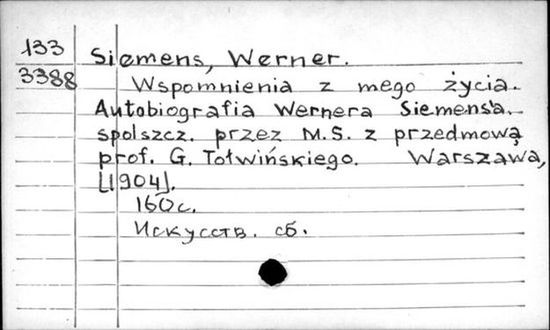 133 Siemens, Werner.
3388 Wspomnienia z mego życia.
Autobiografia Wernera Siemensa.
spolszcz. przez M.S. z przedmową
prof. G. Tołwińskiego. Warszawa,
[1904].
160с.
Искусств. сб.